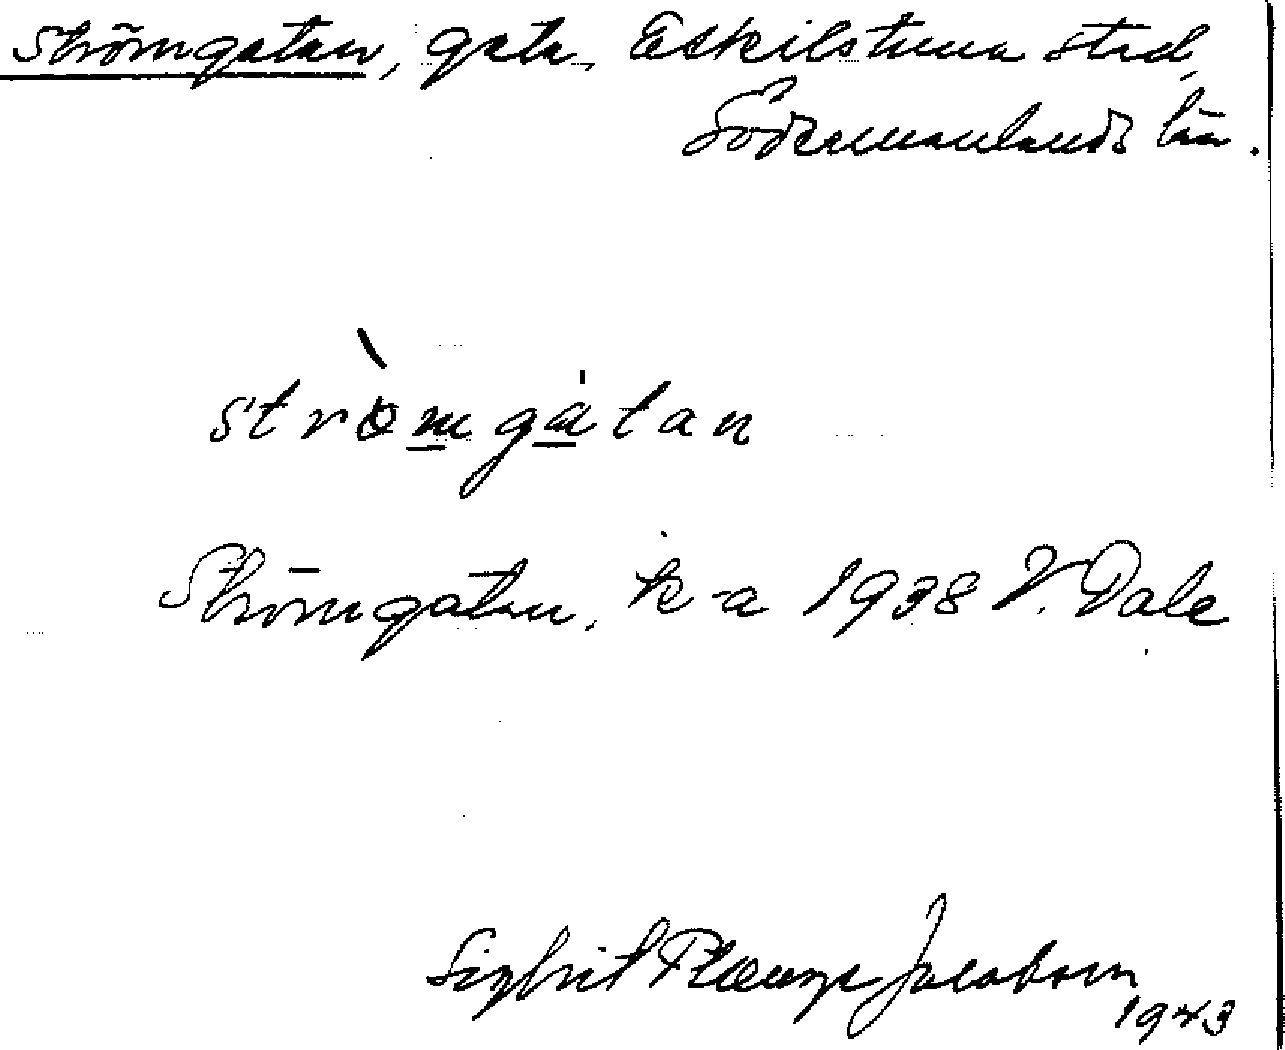 Strömgatan, gata, Eskilstuna stad,
Södermanlands län.
strömgatan
Strömgatan. k-a 1938 V. Dale
Sigbrit Plænge Jacobson
1943